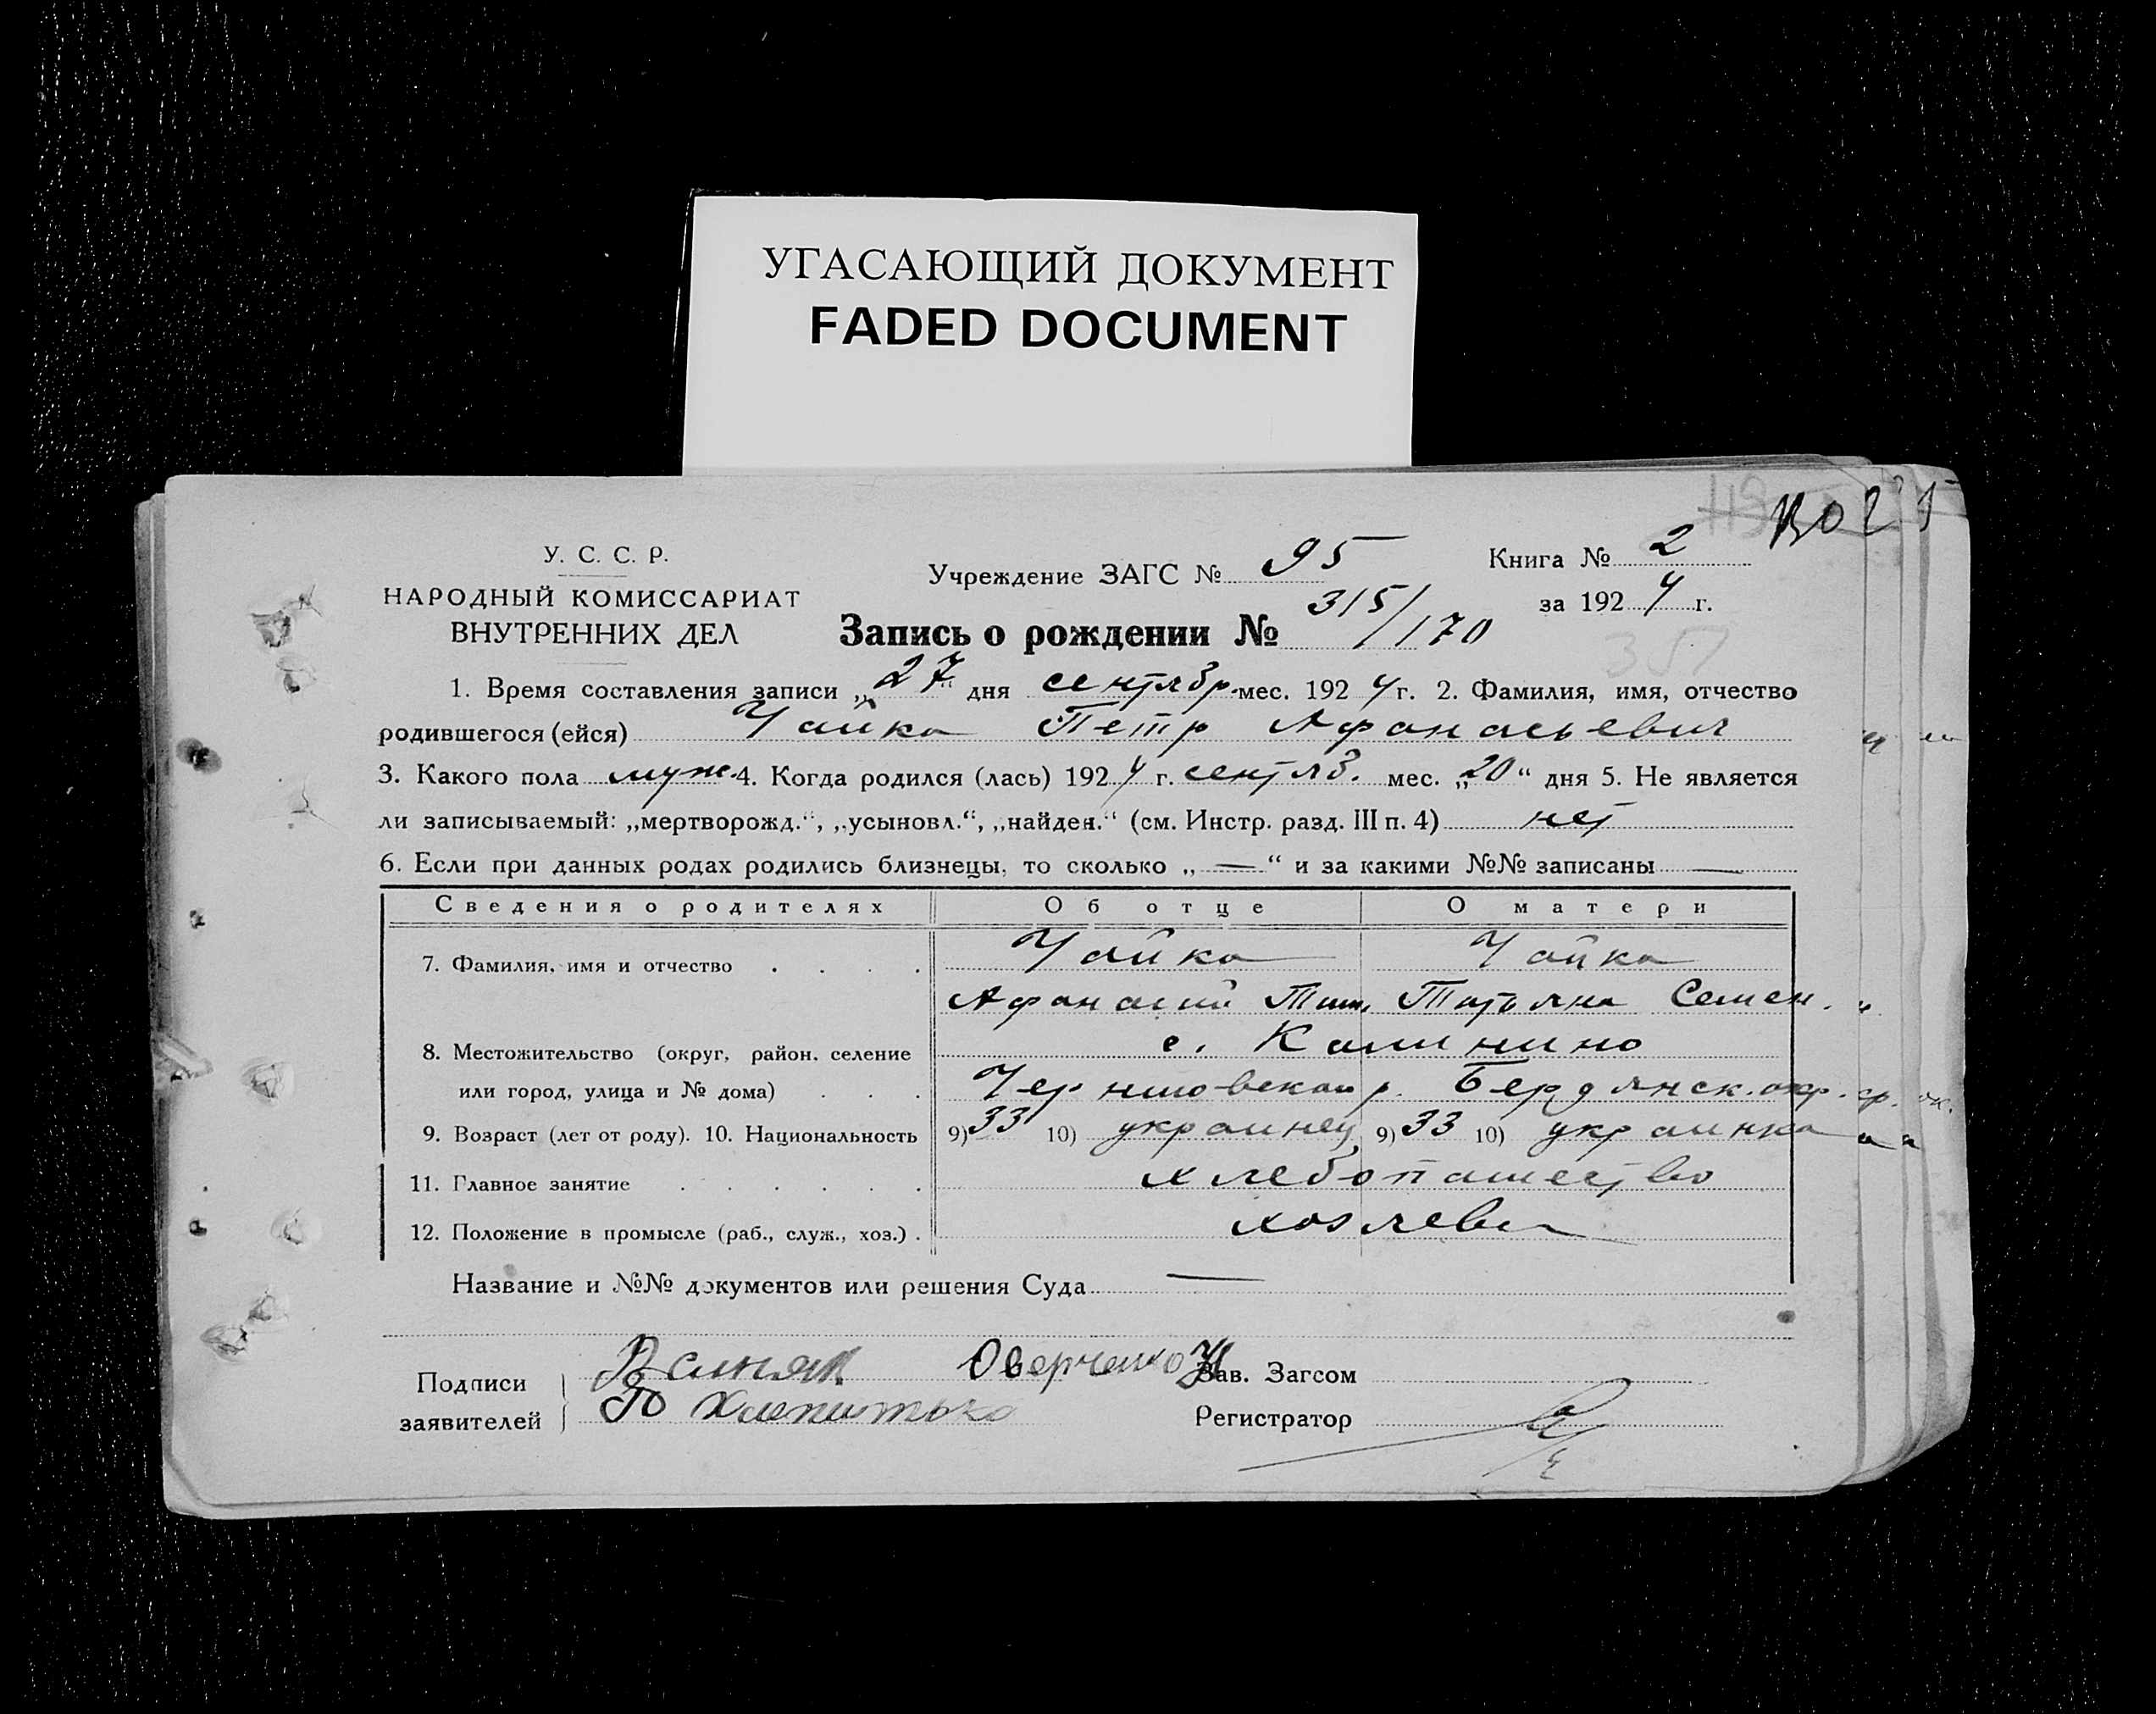 УГАСАЮЩИЙ ДОКУМЕНТ
FADED DOCUMENT
У. С. С. Р.
НАРОДНЫЙ КОМИССАРИАТ
ВНУТРЕННИХ ДЕЛ
Учреждение ЗАГС № 95
Книга № 2
за 1924 г.
Запись о рождении № 315/170
1. Время составления записи „27“ дня сентябр. мес. 1924 г. 2. Фамилия, имя, отчество
родившегося (ейся) Чайка Петр Афанасьевич
3. Какого пола муж. 4. Когда родился (лась) 1924 г. сентяб. мес. „20“ дня 5. Не является
ли записываемый: „мертворожд.“, „усыновл.“, „найден.“ (см. Инстр. разд. III п. 4) нет
6. Если при данных родах родились близнецы, то сколько „—“ и за какими №№ записаны —
Сведения о родителях Об отце О матери
7. Фамилия, имя и отчество . . . . Чайка Чайка
Афанасий Тим. Татьяна Семен.
8. Местожительство (округ, район, селение с. Калинино
или город, улица и № дома) . . . Черниговского р. Бердянск. окр.
9. Возраст (лет от роду). 10. Национальность 9) 33 10) украинец 9) 33 10) украинка
11. Главное занятие . . . . . . хлебопашество
12. Положение в промысле (раб., служ., хоз.) . хозяева
Название и №№ документов или решения Суда —
Подписи
заявителей
Оверченко
Зав. Загсом
Регистратор